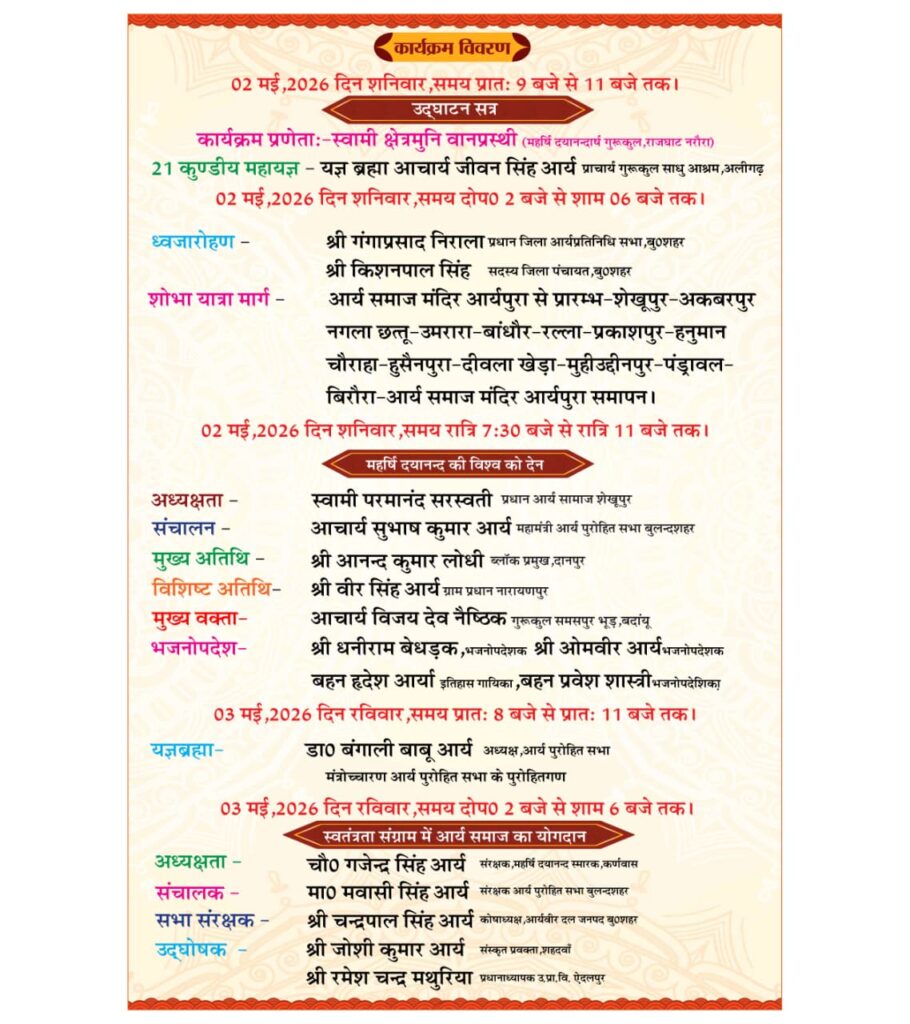 कार्यक्रम विवरण
02 मई,2026 दिन शनिवार,समय प्रातः 9 बजे से 11 बजे तक।
उद्घाटन सत्र
कार्यक्रम प्रणेताः-स्वामी क्षेत्रमुनि वानप्रस्थी (महर्षि दयानन्दार्ष गुरूकुल,राजघाट नरौरा)
21 कुण्डीय महायज्ञ - यज्ञ ब्रह्मा आचार्य जीवन सिंह आर्य प्राचार्य गुरूकुल साधु आश्रम,अलीगढ़
02 मई,2026 दिन शनिवार,समय दोप0 2 बजे से शाम 06 बजे तक।
ध्वजारोहण - श्री गंगाप्रसाद निराला प्रधान जिला आर्यप्रतिनिधि सभा,बु0शहर
श्री किशनपाल सिंह सदस्य जिला पंचायत,बु0शहर
शोभा यात्रा मार्ग - आर्य समाज मंदिर आर्यपुरा से प्रारम्भ-शेखूपुर-अकबरपुर
नगला छत्तू-उमरारा-बांधौर-रल्ला-प्रकाशपुर-हनुमान
चौराहा-हुसैनपुरा-दीवला खेड़ा-मुहीउद्दीनपुर-पंड्रावल-
बिरौरा-आर्य समाज मंदिर आर्यपुरा समापन।
02 मई,2026 दिन शनिवार,समय रात्रि 7:30 बजे से रात्रि 11 बजे तक।
महर्षि दयानन्द की विश्व को देन
अध्यक्षता - स्वामी परमानंद सरस्वती प्रधान आर्य सामाज शेखूपुर
संचालन - आचार्य सुभाष कुमार आर्य महामंत्री आर्य पुरोहित सभा बुलन्दशहर
मुख्य अतिथि - श्री आनन्द कुमार लोधी ब्लॉक प्रमुख,दानपुर
विशिष्ट अतिथि- श्री वीर सिंह आर्य ग्राम प्रधान नारायणपुर
मुख्य वक्ता- आचार्य विजय देव नैष्ठिक गुरूकुल समसपुर भूड़,बदांयू
भजनोपदेश- श्री धनीराम बेधड़क,भजनोपदेशक श्री ओमवीर आर्यभजनोपदेशक
बहन हृदेश आर्या इतिहास गायिका,बहन प्रवेश शास्त्रीभजनोपदेशिका़
03 मई,2026 दिन रविवार,समय प्रातः 8 बजे से प्रातः 11 बजे तक।
यज्ञब्रह्मा- डा0 बंगाली बाबू आर्य अध्यक्ष,आर्य पुरोहित सभा
मंत्रोच्चारण आर्य पुरोहित सभा के पुरोहितगण
03 मई,2026 दिन रविवार,समय दोप0 2 बजे से शाम 6 बजे तक।
स्वतंत्रता संग्राम में आर्य समाज का योगदान
अध्यक्षता - चौ0 गजेन्द्र सिंह आर्य संरक्षक,महर्षि दयानन्द स्मारक,कर्णवास
संचालक - मा0 मवासी सिंह आर्य संरक्षक आर्य पुरोहित सभा बुलन्दशहर
सभा संरक्षक - श्री चन्द्रपाल सिंह आर्य कोषाध्यक्ष,आर्यवीर दल जनपद बु0शहर
उद्घोषक - श्री जोशी कुमार आर्य संस्कृत प्रवक्ता,शहदवाँ
श्री रमेश चन्द्र मथुरिया प्रधानाध्यापक उ.प्रा.वि. ऐदलपुर